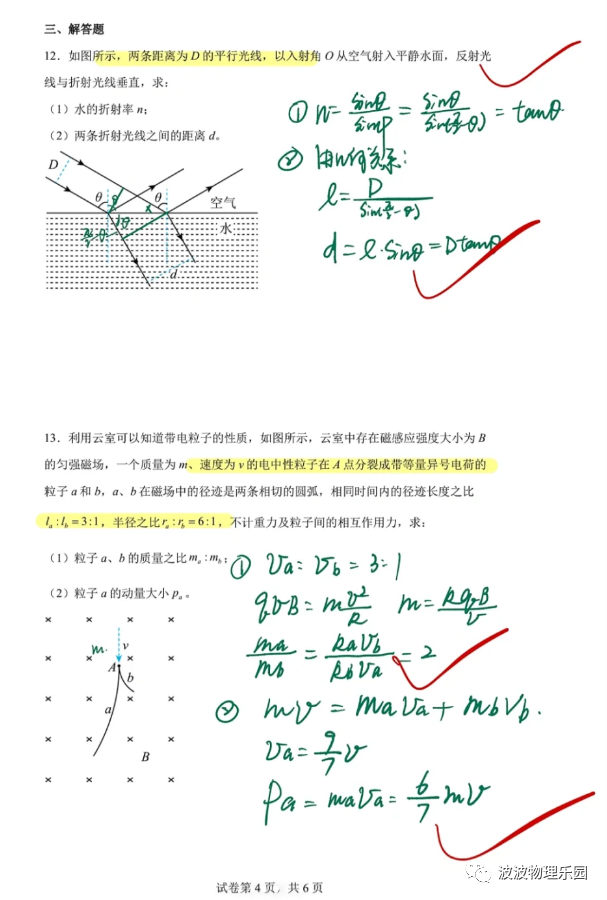 三、解答题
12．如图所示，两条距离为 D 的平行光线，以入射角 θ 从空气射入平静水面，反射光
线与折射光线垂直，求：
（1）水的折射率 n；
（2）两条折射光线之间的距离 d。
① n= sinθ/sinβ = sinθ/sin(π/2-θ) = tanθ
② 由几何关系：
l= D/sin(π/2-θ)
d= l·sinθ=Dtanθ
D
θ
θ
θ
x
空气
水
π/2-θ
θ
d
13．利用云室可以知道带电粒子的性质，如图所示，云室中存在磁感应强度大小为 B
的匀强磁场，一个质量为 m、速度为 v 的电中性粒子在 A 点分裂成带等量异号电荷的
粒子 a 和 b，a、b 在磁场中的径迹是两条相切的圆弧，相同时间内的径迹长度之比
la : lb = 3:1，半径之比 ra : rb = 6:1，不计重力及粒子间的相互作用力，求：
（1）粒子 a、b 的质量之比 ma : mb；
（2）粒子 a 的动量大小 pa。
① Va: Vb = 3:1
qvB=m v²/R m= RqB/v
ma/mb = RaVb/RbVa = 2
② mv = maVa + mbVb.
Va= 9/7 v
Pa = maVa= 6/7 mv
× × × ×
m. v
× A × × ×
b
× × × ×
a
× × × ×
B
× × × ×
试卷第 4 页，共 6 页
波波物理乐园